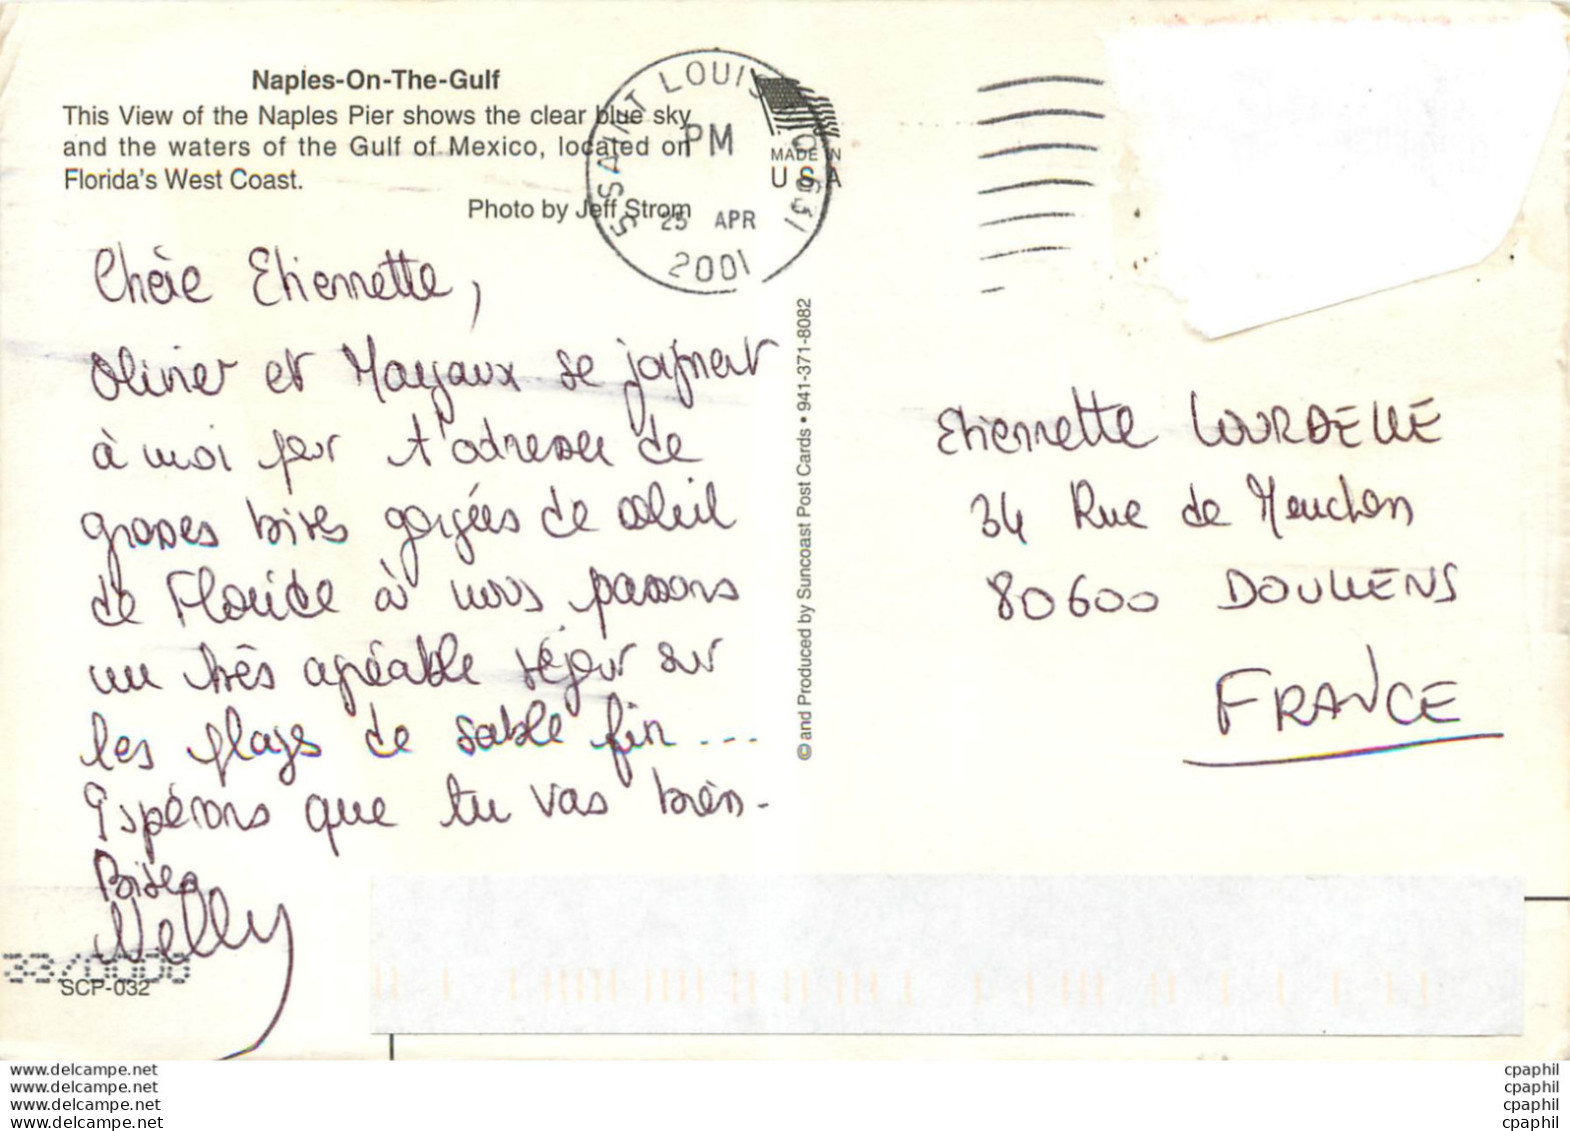 Naples-On-The-Gulf
This View of the Naples Pier shows the clear blue sky
and the waters of the Gulf of Mexico, located on
Florida's West Coast.
Photo by Jeff Strom
SAINT LOUIS MO 631
PM
25 APR
2001
MADE IN
USA
Chère Etiennette,
Olivier et Mayaux se joignent
à moi pour t'adresser de
grosses bises gorgées de soleil
de Floride où nous passons
un très agréable séjour sur
les plages de sable fin...
Espérons que tu vas bien.
Bises
Nelly
SCP-032
© and Produced by Suncoast Post Cards • 941-371-8082
Etiennette LOURDELLE
34 Rue de Menchon
80600 DOULLENS
FRANCE
www.delcampe.net
www.delcampe.net
www.delcampe.net
www.delcampe.net
cpaphil
cpaphil
cpaphil
cpaphil